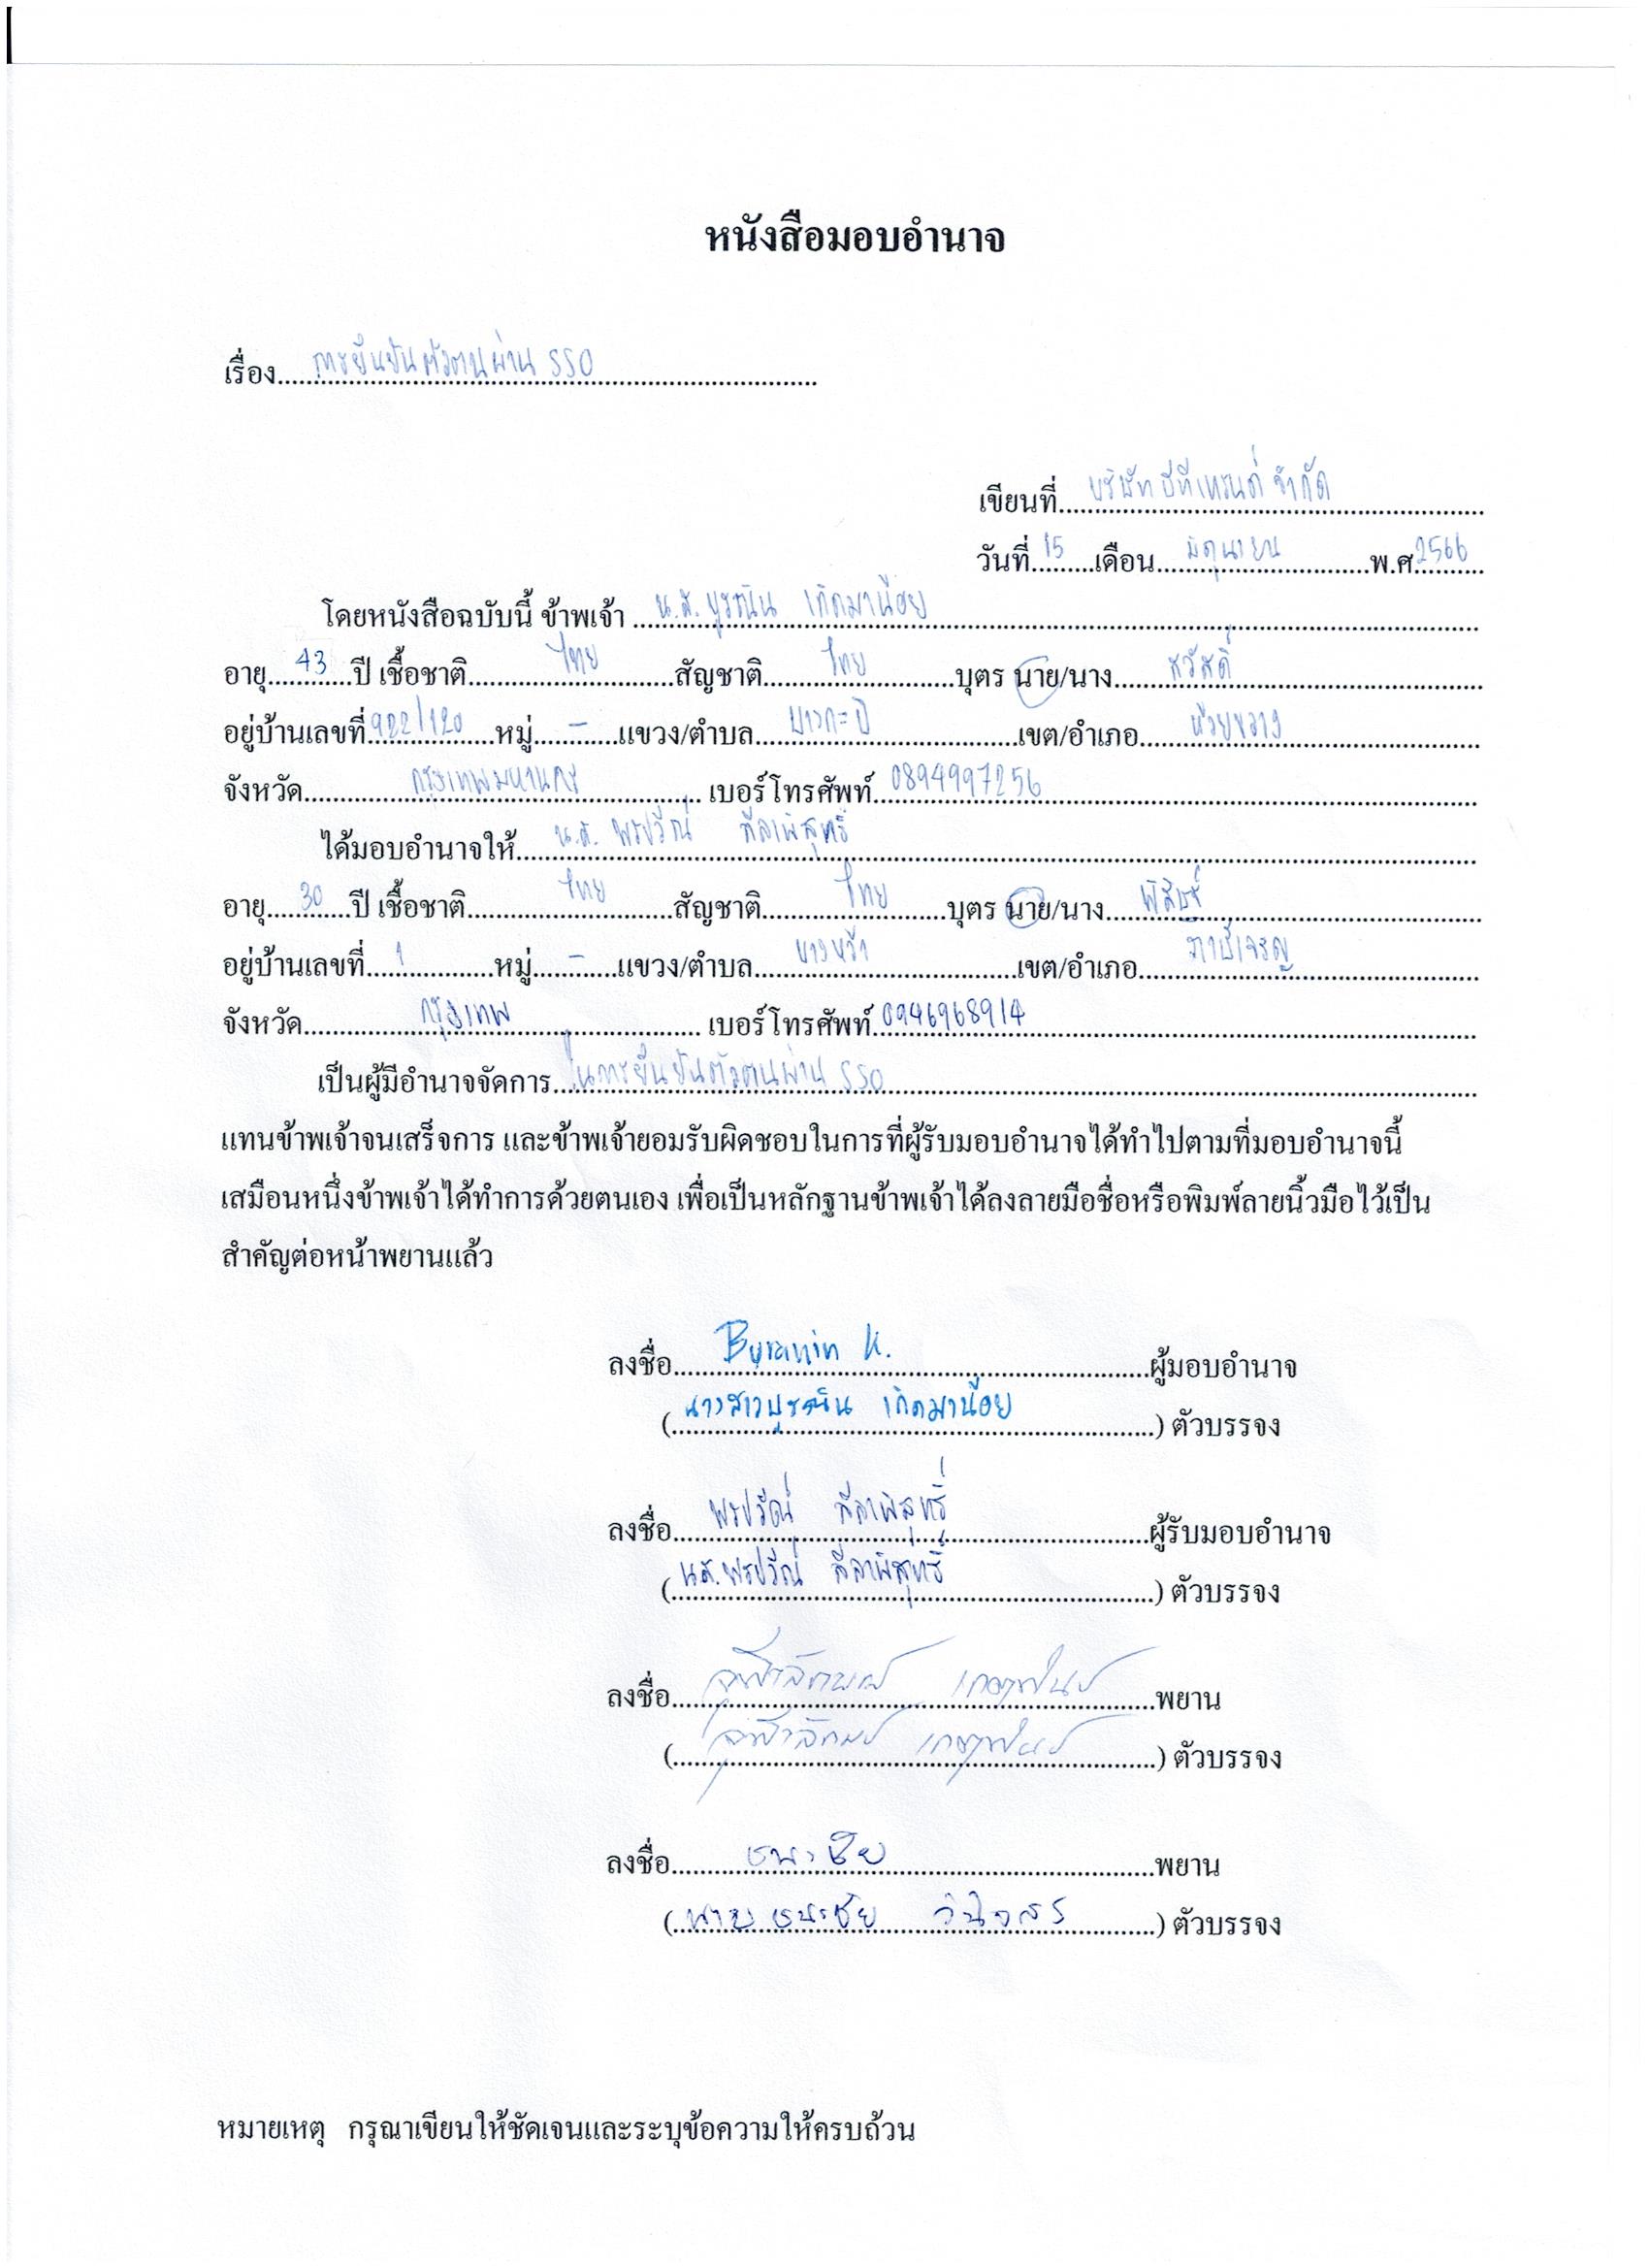 หนังสือมอบอำนาจ
เรื่อง การยืนยันตัวตนผ่าน SSO
เขียนที่ บริษัท บีทีเทรนด์ จำกัด
วันที่ 15 เดือน มิถุนายน พ.ศ. 2566
โดยหนังสือฉบับนี้ ข้าพเจ้า น.ส. บูรณิน เกิดมาน้อย
อายุ 43 ปี เชื้อชาติ ไทย สัญชาติ ไทย บุตร นาย/นาง สวัสดิ์
อยู่บ้านเลขที่ 922/120 หมู่ - แขวง/ตำบล บางกะปิ เขต/อำเภอ ห้วยขวาง
จังหวัด กรุงเทพมหานคร เบอร์โทรศัพท์ 0894997256
ได้มอบอำนาจให้ น.ส. พรปวีณ์ ลีลาพิสุทธิ์
อายุ 30 ปี เชื้อชาติ ไทย สัญชาติ ไทย บุตร นาย/นาง พิสิษฐ์
อยู่บ้านเลขที่ 1 หมู่ - แขวง/ตำบล บางหว้า เขต/อำเภอ ภาษีเจริญ
จังหวัด กรุงเทพ เบอร์โทรศัพท์ 0946968914
เป็นผู้มีอำนาจจัดการ ในการยืนยันตัวตนผ่าน SSO
แทนข้าพเจ้าจนเสร็จการ และข้าพเจ้ายอมรับผิดชอบในการที่ผู้รับมอบอำนาจได้ทำไปตามที่มอบอำนาจนี้
เสมือนหนึ่งข้าพเจ้าได้ทำการด้วยตนเอง เพื่อเป็นหลักฐานข้าพเจ้าได้ลงลายมือชื่อหรือพิมพ์ลายนิ้วมือไว้เป็น
สำคัญต่อหน้าพยานแล้ว
ลงชื่อ Buranin K. ผู้มอบอำนาจ
(นางสาวบูรณิน เกิดมาน้อย) ตัวบรรจง
ลงชื่อ พรปวีณ์ ลีลาพิสุทธิ์ ผู้รับมอบอำนาจ
(น.ส. พรปวีณ์ ลีลาพิสุทธิ์) ตัวบรรจง
ลงชื่อ พยาน
( ) ตัวบรรจง
ลงชื่อ ธนะชัย พยาน
(นายธนะชัย วินิจสร) ตัวบรรจง
หมายเหตุ กรุณาเขียนให้ชัดเจนและระบุข้อความให้ครบถ้วน